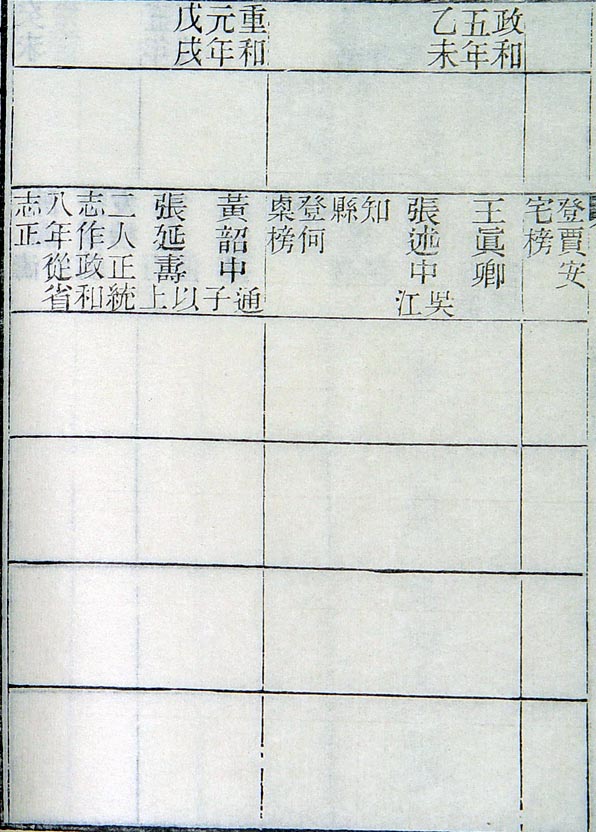 政和
五年
乙未
重和
元年
戊戌
登賈安
宅榜
王眞卿
張述中吳
江
知
縣
登何
㮚榜
黃韶中通
子
張延壽以
上
二人正統
志作政和
八年從省
志正